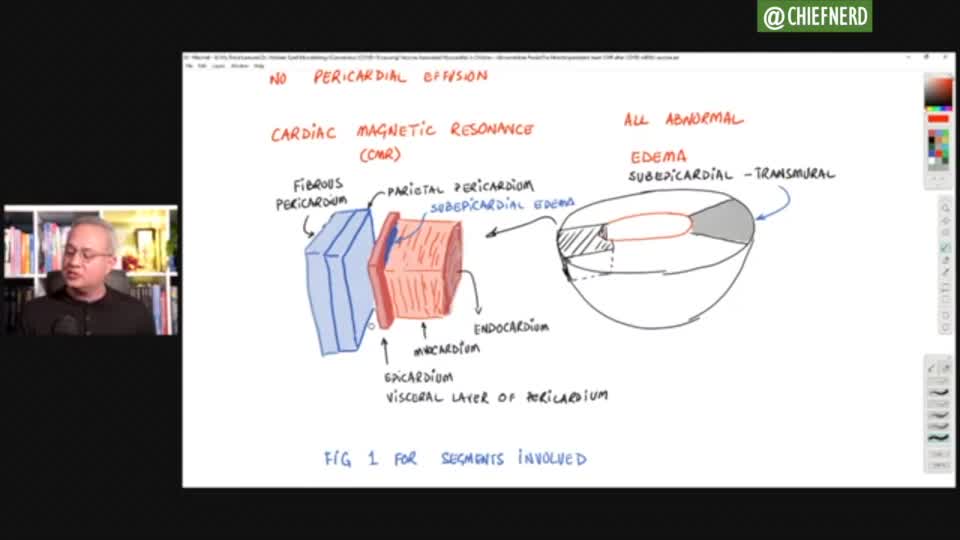 @CHIEFNERD
NO PERICARDIAL EFFUSION
CARDIAC MAGNETIC RESONANCE
(CMR)
ALL ABNORMAL
EDEMA
SUBEPICARDIAL - TRANSMURAL
FIBROUS
PERICARDIUM
PARIETAL PERICARDIUM
SUBEPICARDIAL EDEMA
ENDOCARDIUM
MYOCARDIUM
EPICARDIUM
VISCERAL LAYER OF PERICARDIUM
FIG 1 FOR SEGMENTS INVOLVED